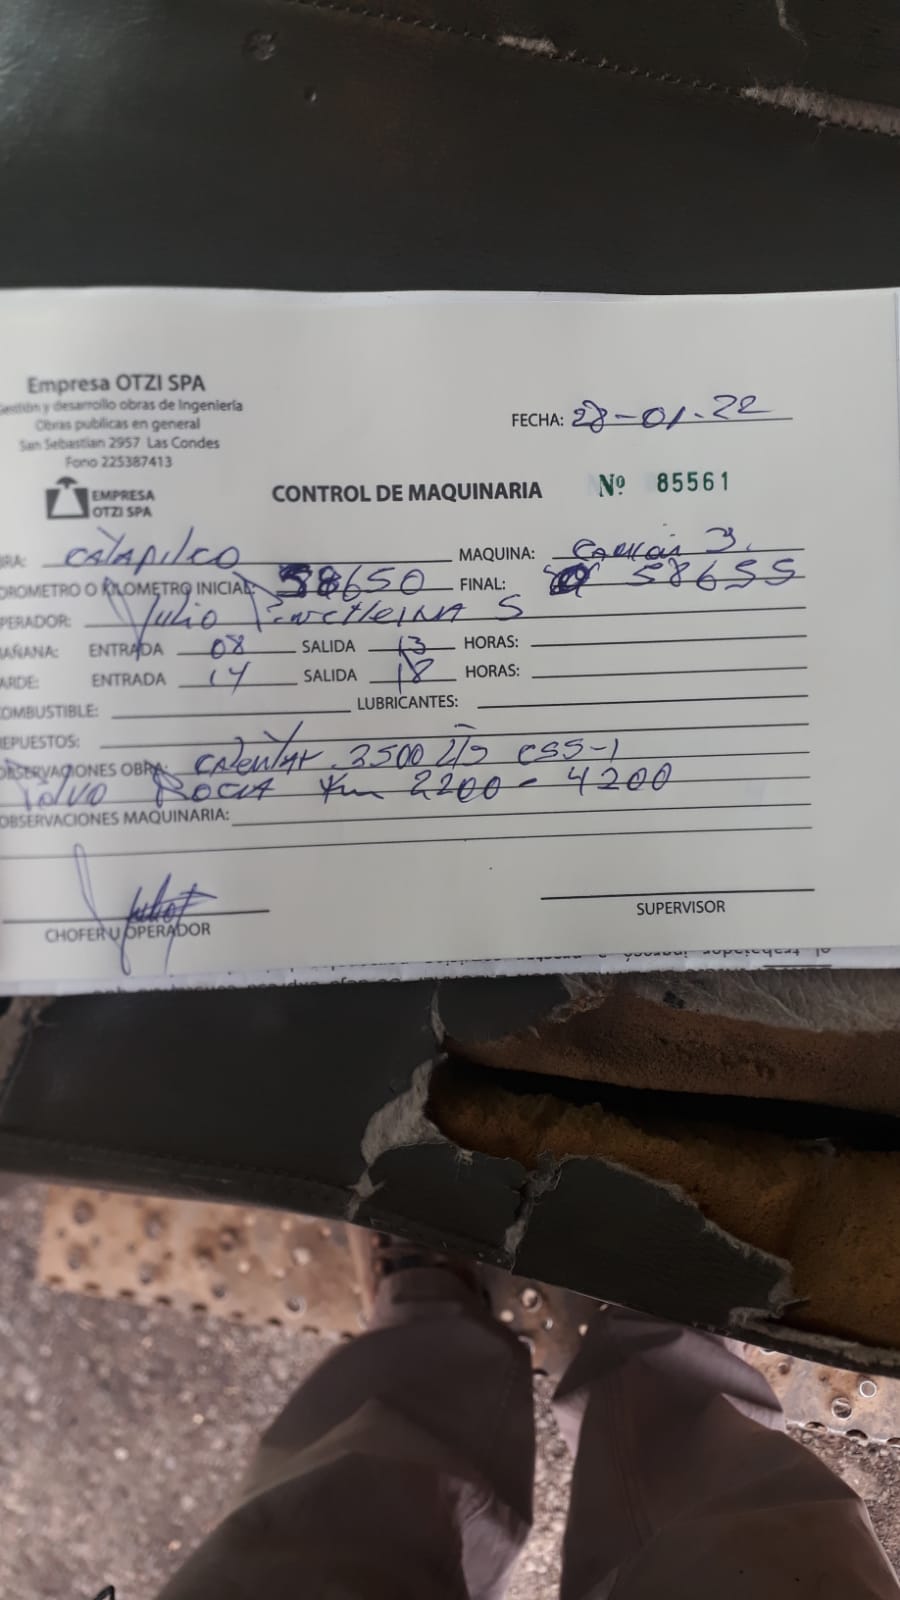 Empresa OTZI SPA
Gestión y desarrollo obras de Ingeniería
Obras publicas en general
San Sebastian 2957 Las Condes
Fono 225387413
FECHA: 28-01-22
EMPRESA
OTZI SPA
CONTROL DE MAQUINARIA Nº 85561
BRA: CATAPILCO MAQUINA: CAMION 3.
OROMETRO O KILOMETRO INICIAL: 58650 FINAL: 58655
PERADOR: Julio S
AÑANA: ENTRADA 08 SALIDA 13 HORAS:
ARDE: ENTRADA 14 SALIDA 18 HORAS:
OMBUSTIBLE: LUBRICANTES:
EPUESTOS:
OBSERVACIONES OBRA: CALENTAR 3500 LTS CSS-1
POLVO ROCA Km 2200 - 4200
OBSERVACIONES MAQUINARIA:
CHOFER U OPERADOR
SUPERVISOR